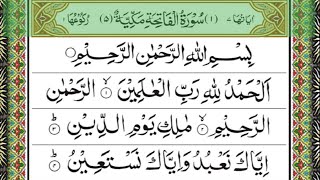 اٰیَاتُهَا ٧ (١) سُوْرَةُ الْفَاتِحَةِ مَكِّيَّةٌ (٥) رُكُوْعُهَا ١
بِسْمِ اللّٰهِ الرَّحْمٰنِ الرَّحِيْمِ
اَلْحَمْدُ لِلّٰهِ رَبِّ الْعٰلَمِيْنَ ۙ‏ ١ الرَّحْمٰنِ
الرَّحِيْمِ ۙ‏ ٢ مٰلِكِ يَوْمِ الدِّيْنِ ؕ‏ ٣
اِيَّاكَ نَعْبُدُ وَاِيَّاكَ نَسْتَعِيْنُ ؕ‏ ٤